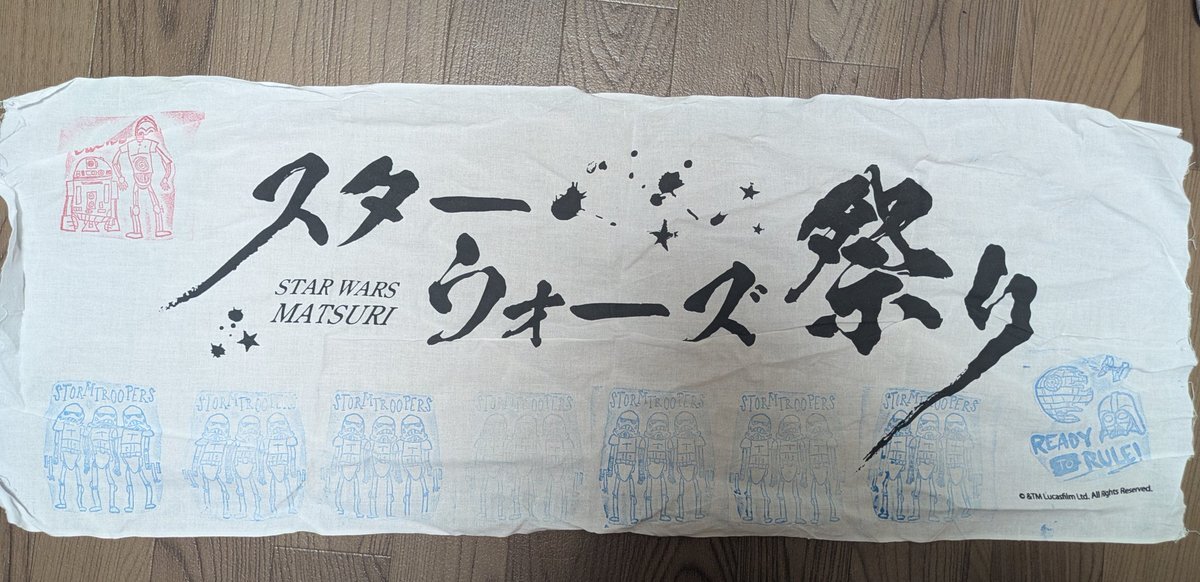 スター
ウォーズ祭り
STAR WARS
MATSURI
STORMTROOPERS
STORMTROOPERS
STORMTROOPERS
STORMTROOPERS
STORMTROOPERS
STORMTROOPERS
STORMTROOPERS
READY
TO RULE!
© &TM Lucasfilm Ltd. All Rights Reserved.